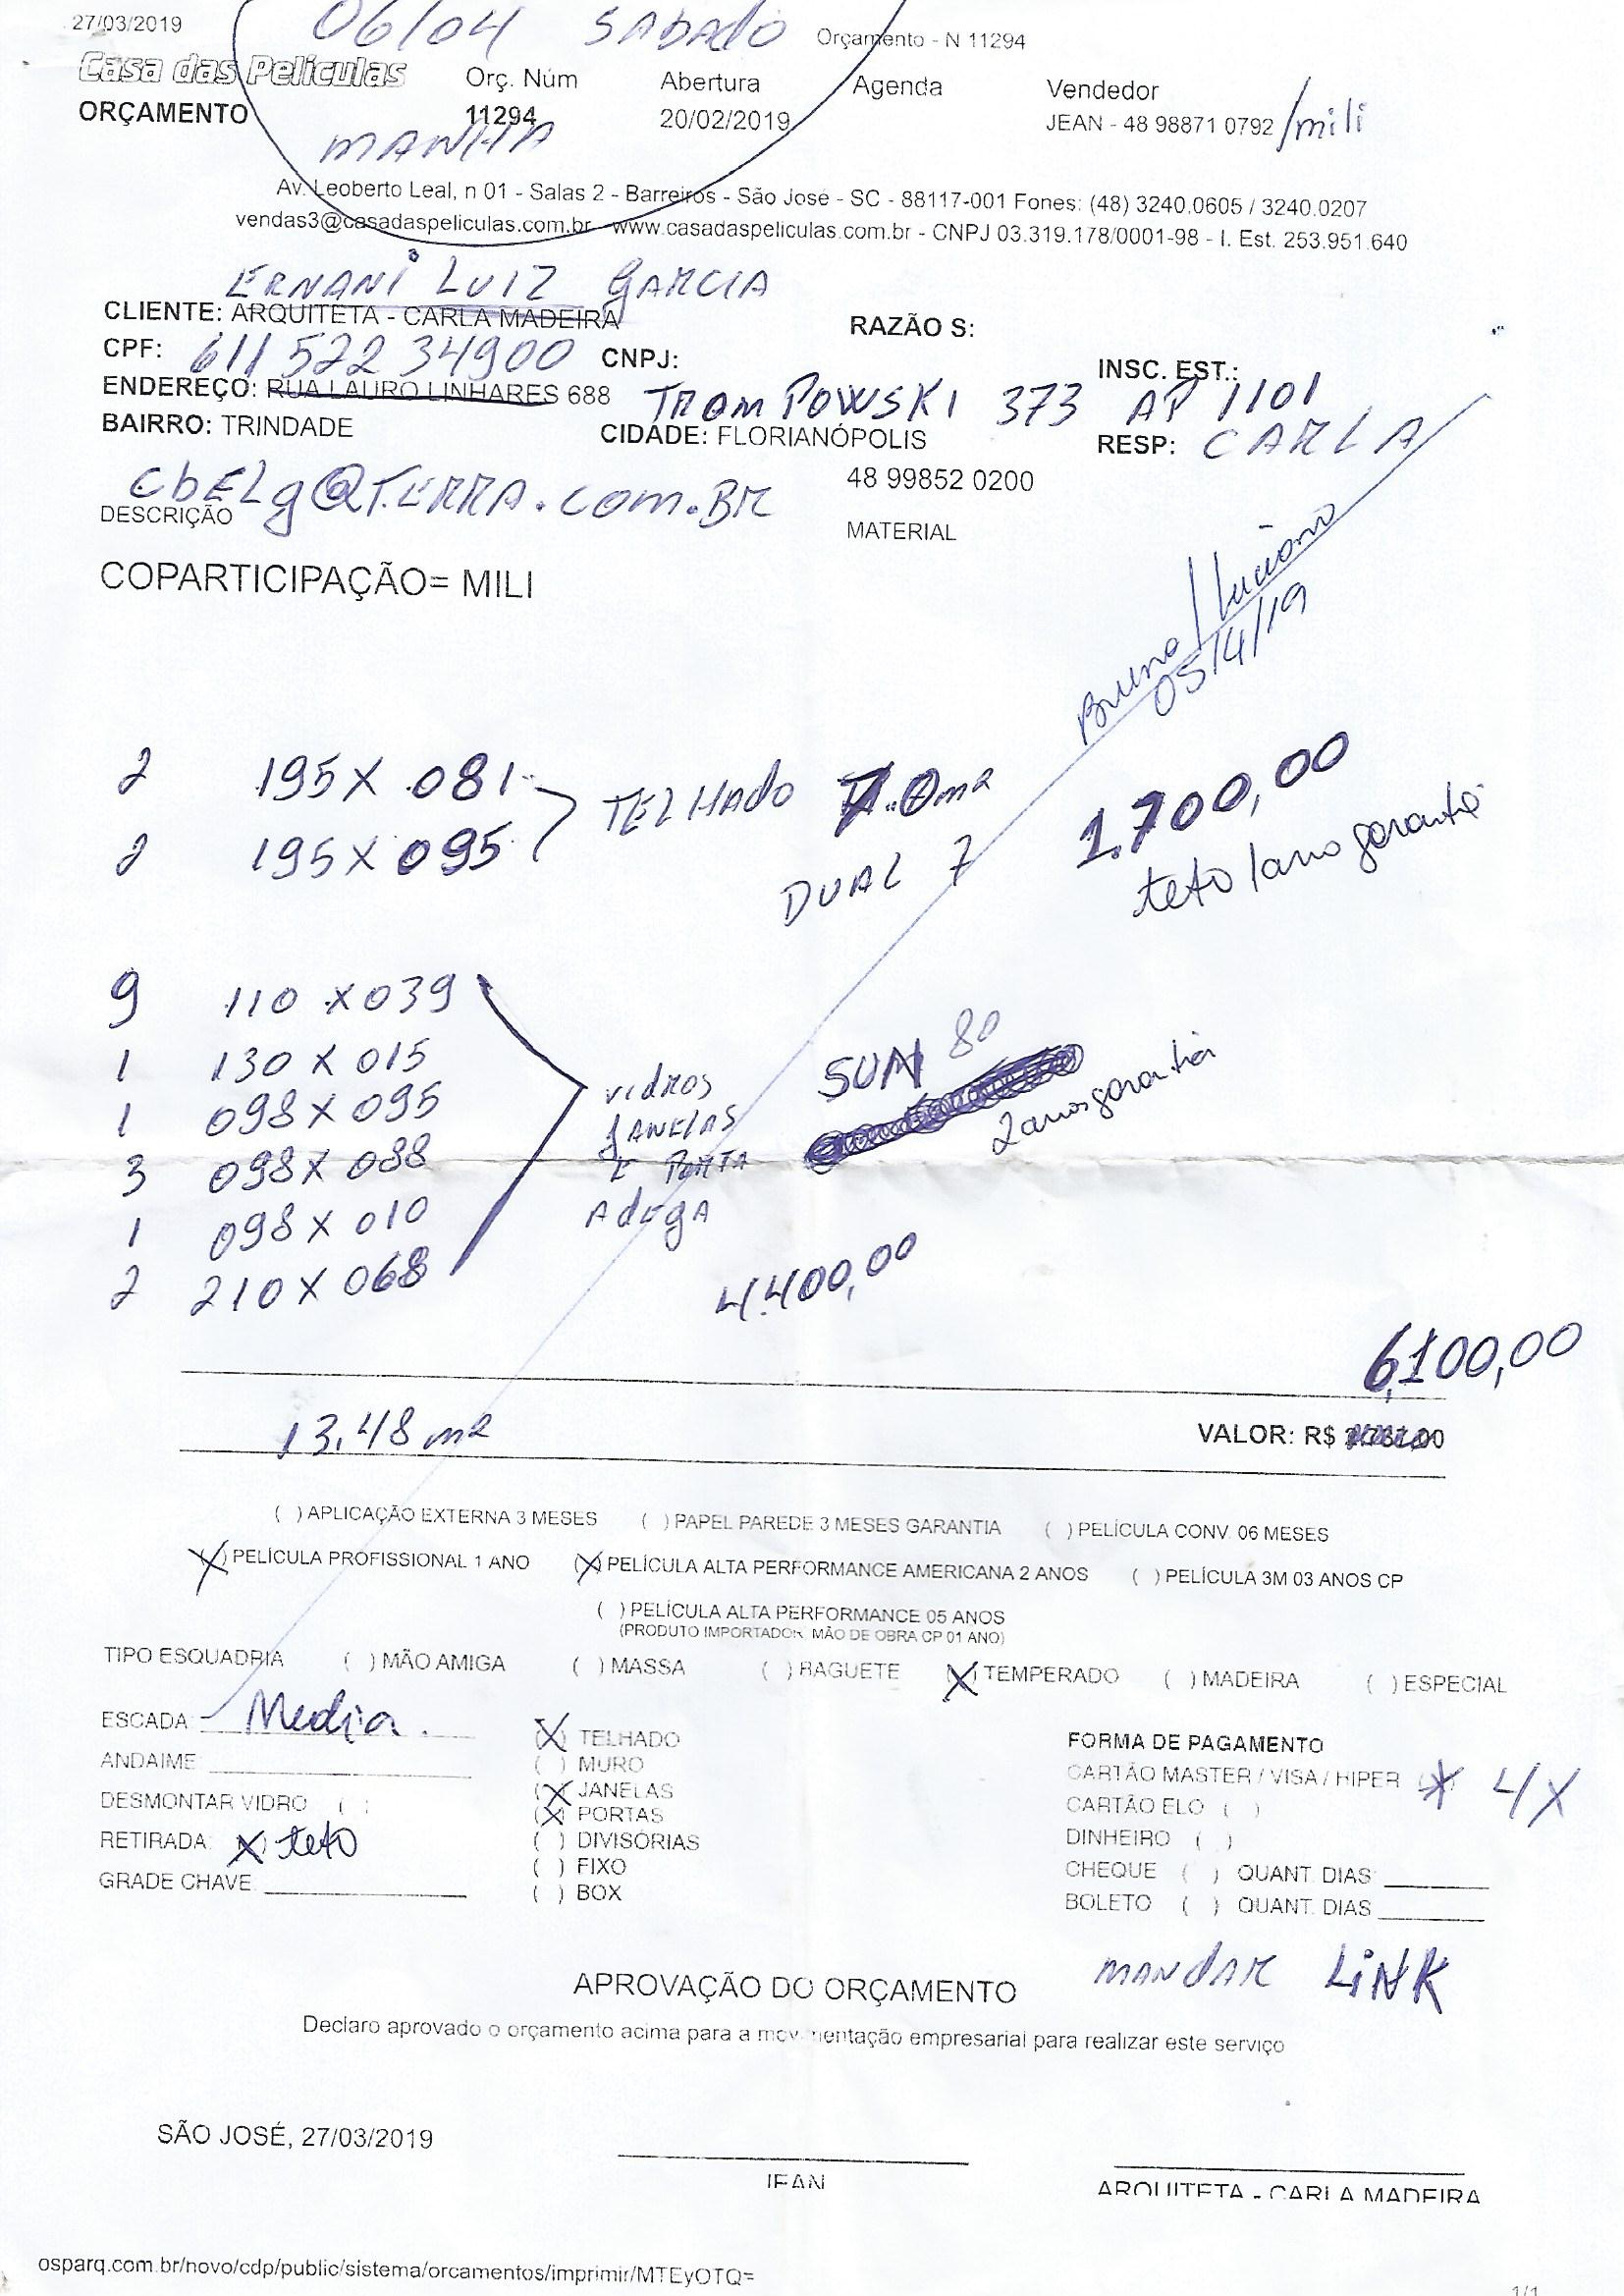 27/03/2019
06/04 SABADO
Orçamento - N 11294
Casa das Películas
Orç. Núm Abertura Agenda Vendedor
ORÇAMENTO 11294 20/02/2019 JEAN - 48 98871 0792 /mili
MANHA
Av. Leoberto Leal, n 01 - Salas 2 - Barreiros - São José - SC - 88117-001 Fones: (48) 3240.0605 / 3240.0207
vendas3@casadaspeliculas.com.br - www.casadaspeliculas.com.br - CNPJ 03.319.178/0001-98 - I. Est. 253.951.640
ERNANI LUIZ GARCIA
CLIENTE: ARQUITETA - CARLA MADEIRA RAZÃO S:
CPF: 611 522 34900 CNPJ: INSC. EST.:
ENDEREÇO: RUA LAURO LINHARES 688 TROMPOWSKI 373 AP 1101
BAIRRO: TRINDADE CIDADE: FLORIANÓPOLIS RESP: CARLA
cbELg@TERRA.com.BR 48 99852 0200
DESCRIÇÃO MATERIAL
COPARTICIPAÇÃO= MILI
Bruno / Luciano
05/4/19
2 195 X 081
2 195 X 095
TELHADO 7.0m²
DUAL 7
1.700,00
teto 1 ano garantia
9 110 X 039
1 130 X 015
1 098 X 095
3 098 X 088
1 098 X 010
2 210 X 068
vidros
JANELAS
E PORTA
AdEgA
SUN 80
2 anos garantia
4.400,00
6.100,00
13,48 m²
VALOR: R$
( ) APLICAÇÃO EXTERNA 3 MESES ( ) PAPEL PAREDE 3 MESES GARANTIA ( ) PELÍCULA CONV. 06 MESES
(X) PELÍCULA PROFISSIONAL 1 ANO (X) PELÍCULA ALTA PERFORMANCE AMERICANA 2 ANOS ( ) PELÍCULA 3M 03 ANOS CP
( ) PELÍCULA ALTA PERFORMANCE 05 ANOS
(PRODUTO IMPORTADOR, MÃO DE OBRA CP 01 ANO)
TIPO ESQUADRIA ( ) MÃO AMIGA ( ) MASSA ( ) BAGUETE (X) TEMPERADO ( ) MADEIRA ( ) ESPECIAL
ESCADA: Media.
ANDAIME:
DESMONTAR VIDRO ( )
RETIRADA: (X) teto
GRADE CHAVE:
(X) TELHADO
( ) MURO
(X) JANELAS
(X) PORTAS
( ) DIVISÓRIAS
( ) FIXO
( ) BOX
FORMA DE PAGAMENTO
CARTÃO MASTER / VISA / HIPER (X) 4X
CARTÃO ELO ( )
DINHEIRO ( )
CHEQUE ( ) QUANT. DIAS:
BOLETO ( ) QUANT. DIAS
MANDAR LINK
APROVAÇÃO DO ORÇAMENTO
Declaro aprovado o orçamento acima para a movimentação empresarial para realizar este serviço
SÃO JOSÉ, 27/03/2019
JEAN
ARQUITETA - CARLA MADEIRA
osparq.com.br/novo/cdp/public/sistema/orcamentos/imprimir/MTEyOTQ=
1/1